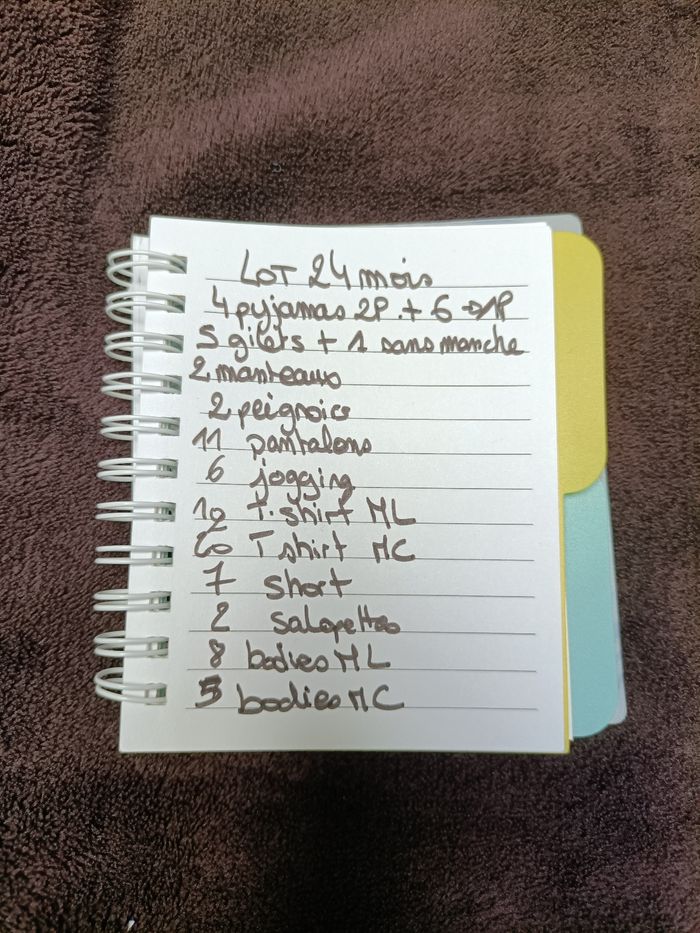 LOT 24 mois
4 pyjamas 2P. + 6 → 1P
5 gilets + 1 sans manche
2 manteaux
2 peignoirs
11 pantalons
6 jogging
T.shirt ML
T shirt MC
7 short
2 salopettes
8 bodies ML
5 bodies MC